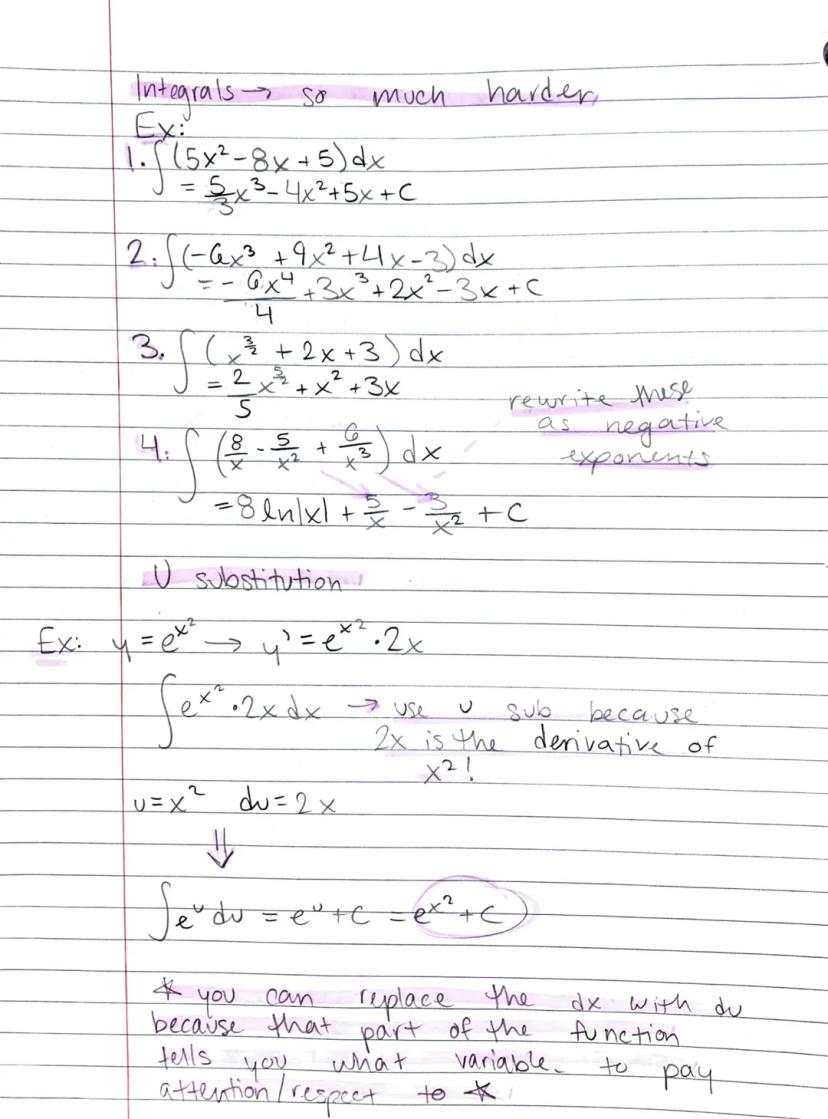 Integrals → so much harder
Ex:
1. ∫(5x² - 8x + 5)dx
= 5/3 x³ - 4x² + 5x + C
2. ∫(-6x³ + 9x² + 4x - 3)dx
= - 6x⁴/4 + 3x³ + 2x² - 3x + C
3. ∫(x^(3/2) + 2x + 3)dx
= 2/5 x^(5/2) + x² + 3x
rewrite these
as negative
exponents
4. ∫(8/x - 5/x² + 6/x³)dx
= 8 ln|x| + 5/x - 3/x² + C
U substitution
Ex: y = e^(x²) → y' = e^(x²) · 2x
∫e^(x²) · 2x dx → use u sub because
2x is the derivative of
x²!
u = x² du = 2x
⇓
∫e^u du = e^u + C = e^(x²) + C
* you can replace the dx with du
because that part of the function
tells you what variable to pay
attention/respect to *